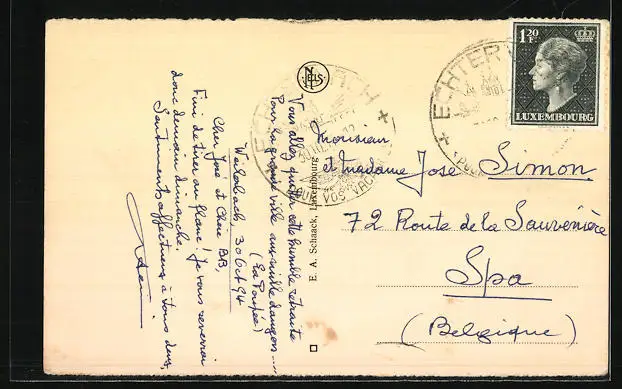 Vous allez quitter cette humble retraite
Pour la grande ville aux mille dangers...
(La Poupée)
Walsbach, 30 Oct 54
Cher José et Chère BB,
Fini de tirer au flanc! Je vous reverrai
donc demain dimanche.
Sentiments affectueux à tous deux,
NELS
E. A. Schaack, Luxembourg
ECHTERNACH
VOS VACANCES
ECHTER
POUR
1.20 F.
LUXEMBOURG
Monsieur
et Madame José Simon
72 Route de la Sauvenière
Spa
(Belgique)